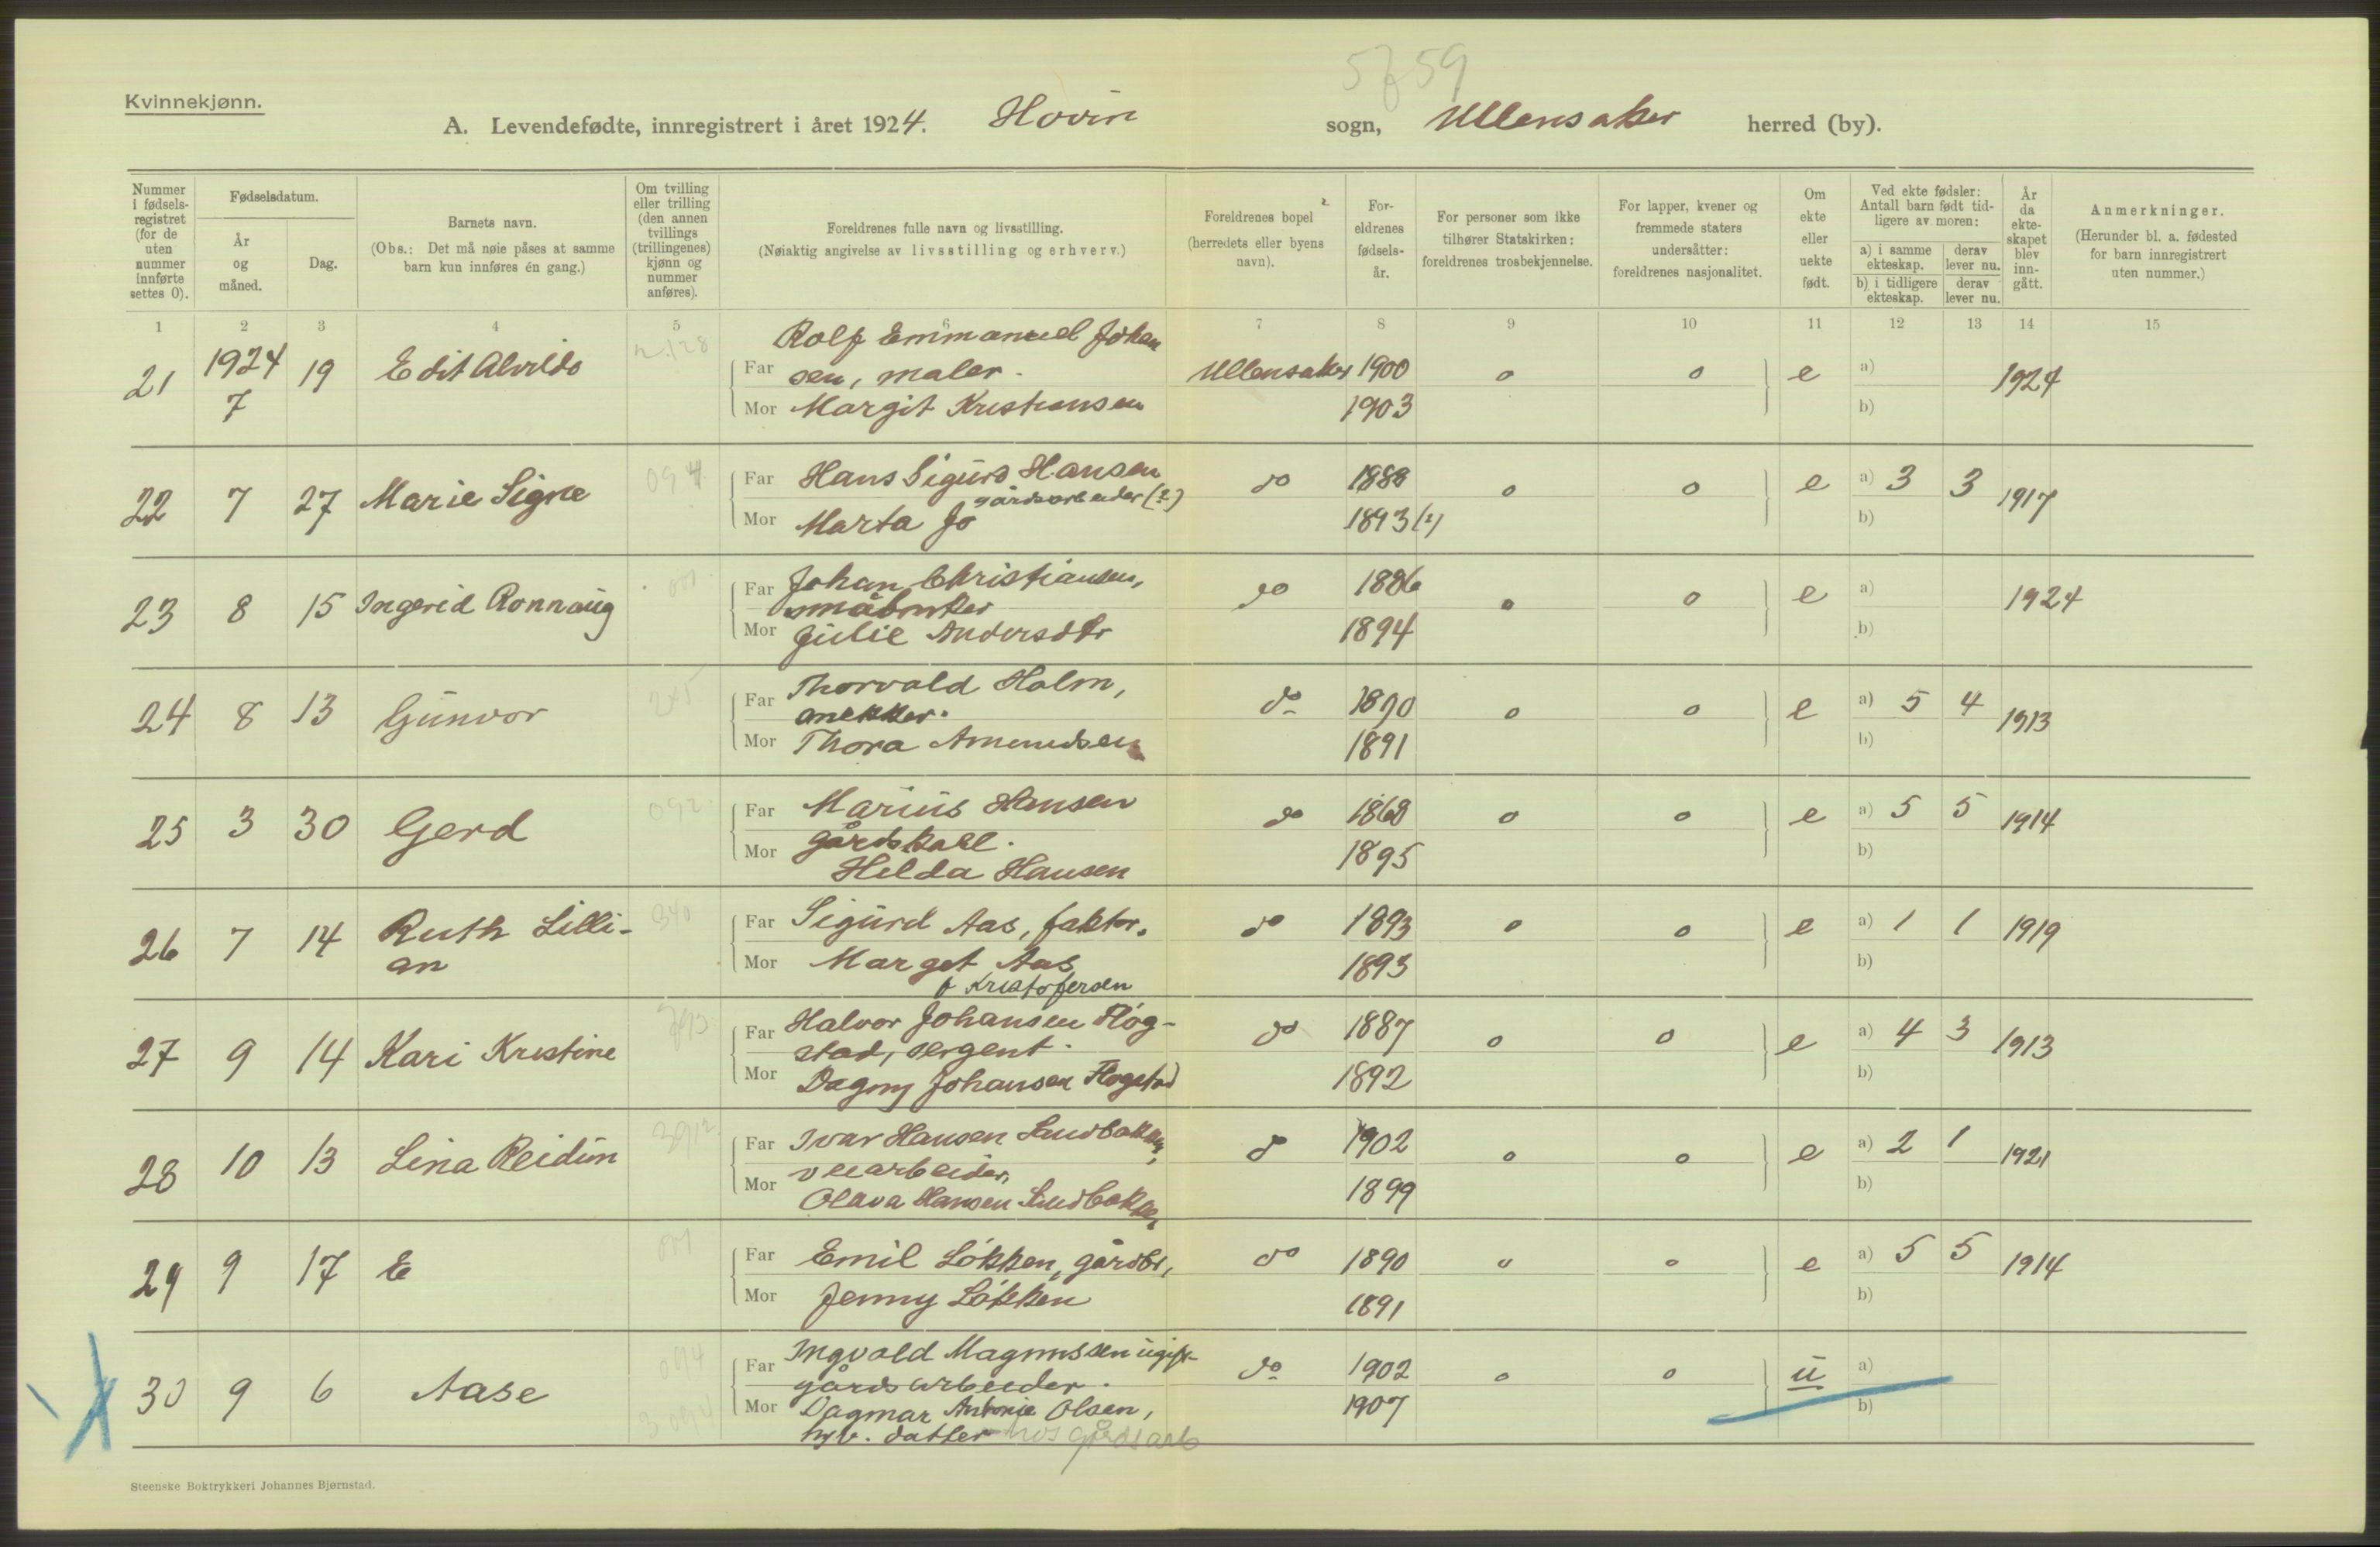 5f 59
Kvinnekjønn.
A. Levendefødte, innregistrert i året 1924. Hovin sogn, Ullensaker herred (by).
Nummer i fødsels-registret (for de uten nummer innførte settes 0).
Fødselsdatum.
År og måned.
Dag.
Barnets navn.
(Obs.: Det må nøie påses at samme barn kun innføres én gang.)
Om tvilling eller trilling (den annen tvillings (trillingenes) kjønn og nummer anføres).
Foreldrenes fulle navn og livsstilling.
(Nøiaktig angivelse av livsstilling og erhverv.)
Foreldrenes bopel (herredets eller byens navn).
For-eldrenes fødsels-år.
For personer som ikke tilhører Statskirken: foreldrenes trosbekjennelse.
For lapper, kvener og fremmede staters undersåtter: foreldrenes nasjonalitet.
Om ekte eller uekte født.
Ved ekte fødsler: Antall barn født tid-ligere av moren:
a) i samme ekteskap. derav lever nu.
b) i tidligere ekteskap. derav lever nu.
År da ekte-skapet blev inn-gått.
Anmerkninger.
(Herunder bl. a. fødested for barn innregistrert uten nummer.)
1 2 3 4 5 6 7 8 9 10 11 12 13 14 15
Rolf Emmanuel Johan
21 1924 7 19 Edit Alvilde Far sen, maler. Ullensaker 1900 o o e a) 1924
Mor Margit Kristiansen 1903 b)
22 7 27 Marie Signe 094 Far Hans Sigurd Hansen do 1888 o o e a) 3 3 1917
gårdsarbeider (?)
Mor Marta Jo 1893 (?) b)
23 8 15 Ingerid Ronnaug Far Johan Christiansen, do 1886 o o e a) 1924
småbruker
Mor Julie Andersdtr 1894 b)
24 8 13 Gunvor 245 Far Thorvald Holm, do 1890 o o e a) 5 4 1913
snekker.
Mor Thora Amundsen 1891 b)
25 3 30 Gerd 092 Far Marius Hansen do 1868 o o e a) 5 5 1914
gårdskall.
Mor Helda Hansen 1895 b)
26 7 14 Ruth Lilli-an 340 Far Sigurd Aas, faktor. do 1893 o o e a) 1 1 1919
Mor Marget Aas 1893 b)
f Kristofersen
27 9 14 Kari Kristine Far Halvor Johansen Flog-do 1887 o o e a) 4 3 1913
stad, sergent.
Mor Dagny Johansen Flogstad 1892 b)
28 10 13 Lina Reidun Far Ivar Hansen Sandbakken, do 1902 o o e a) 2 1 1921
veiarbeider,
Mor Olava Hansen Sandbakken 1899 b)
29 9 17 E Far Emil Løkken, gårdbr, do 1890 o o e a) 5 5 1914
Mor Jenny Løkken 1891 b)
30 9 6 Aase 094 Far Ingvald Magnussen ugift do 1902 o o u a)
gårdsarbeider.
3 094 Mor Dagmar Antonie Olsen, 1907 b)
hjv. datter hos gårdsarb
Steenske Boktrykkeri Johannes Bjørnstad.